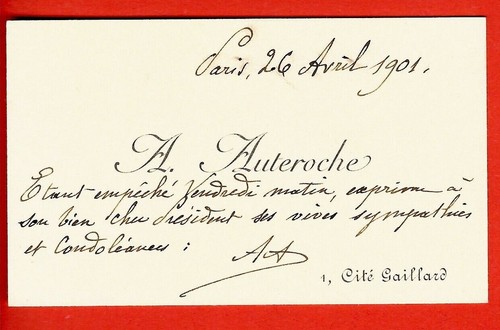 Paris, 26 Avril 1901.
A. Auteroche
Etant empêché Vendredi matin, exprime à
son bien cher président ses vives sympathies
et Condoléances :
AA
1, Cité Gaillard